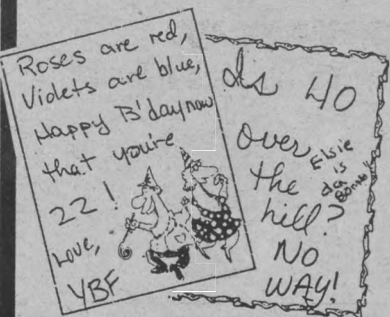 Roses are red,
Violets are blue,
Happy B'day now
that you're
22!
Love,
YBF
Is 40
over
the
hill?
NO
WAY!
Elsie
is
da
Bomb!!